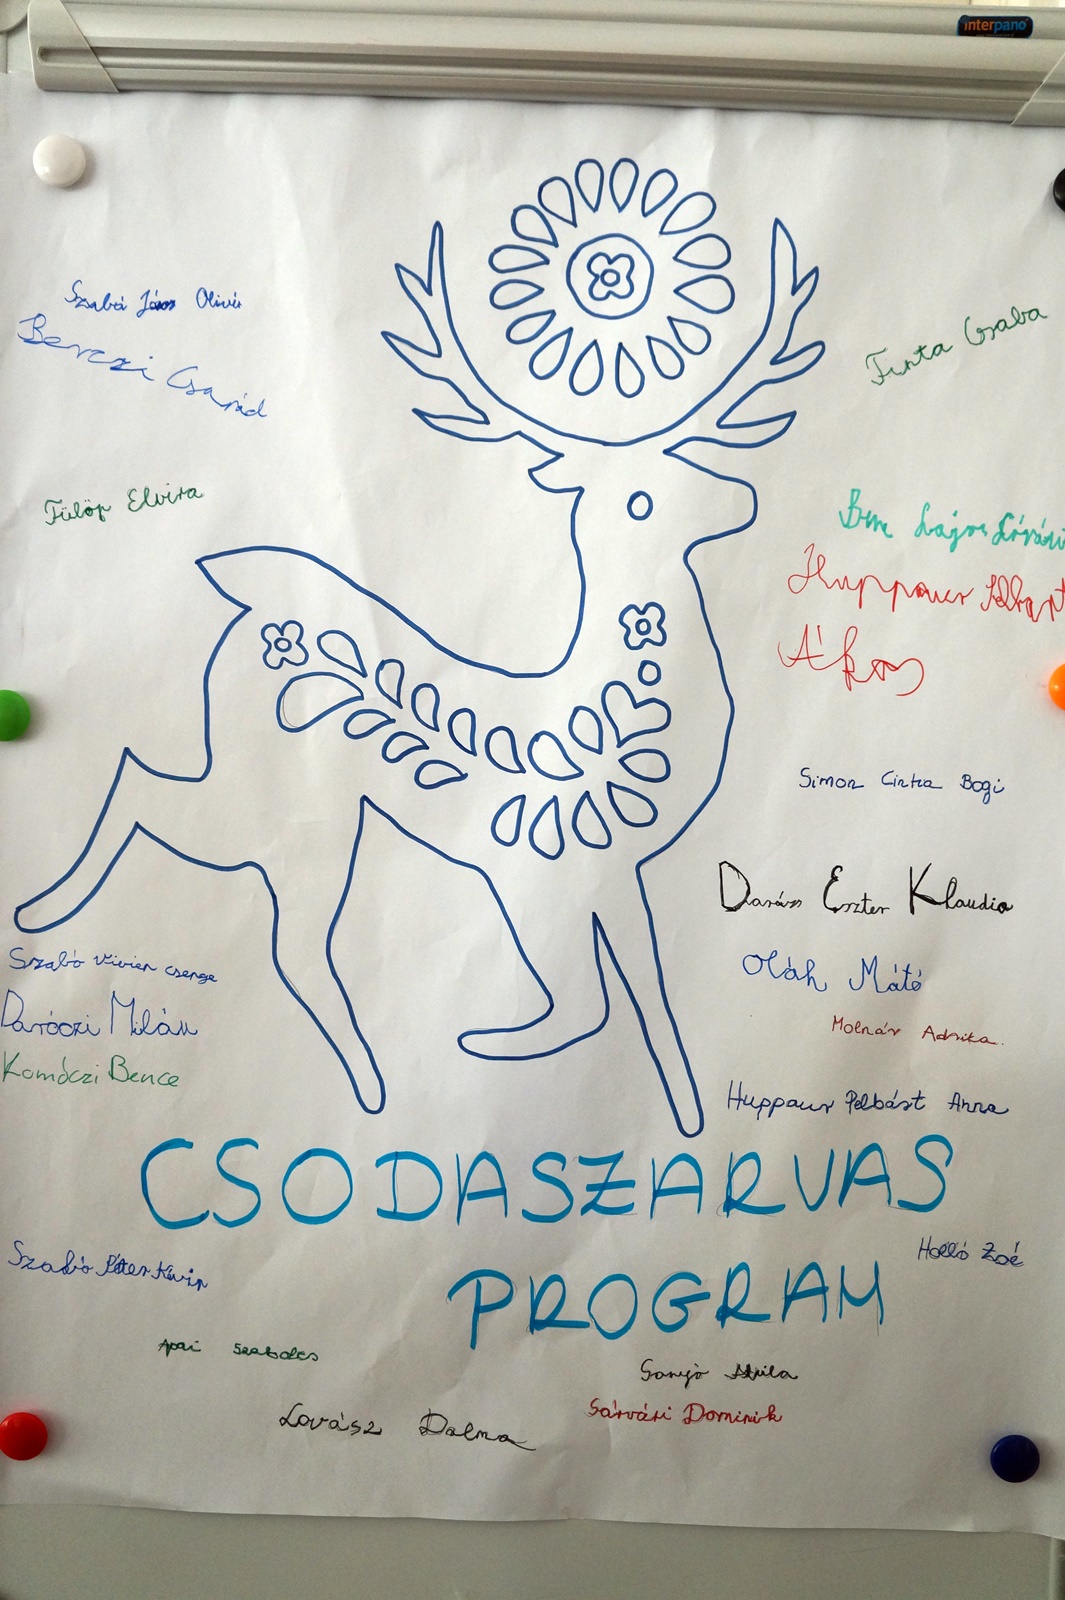 interpano
Szabó János Olivér
Berczi Csanád
Tinta Csaba
Fülöp Elvira
Bene Lajos
Huppauer
Ákos
Simon Cintia Bogi
Darázs Eszter Klaudia
Szabó Vivien Csenge
Oláh Máté
Daróczi Milán
Molnár Adrika.
Komóczi Bence
Huppaur Pelbást Anna
CSODASZARVAS
Szabó Péter Kevin
Holló Zoé
PROGRAM
Apai Szabolcs
Attila
Sárvári Dominik
Lovász Dalma